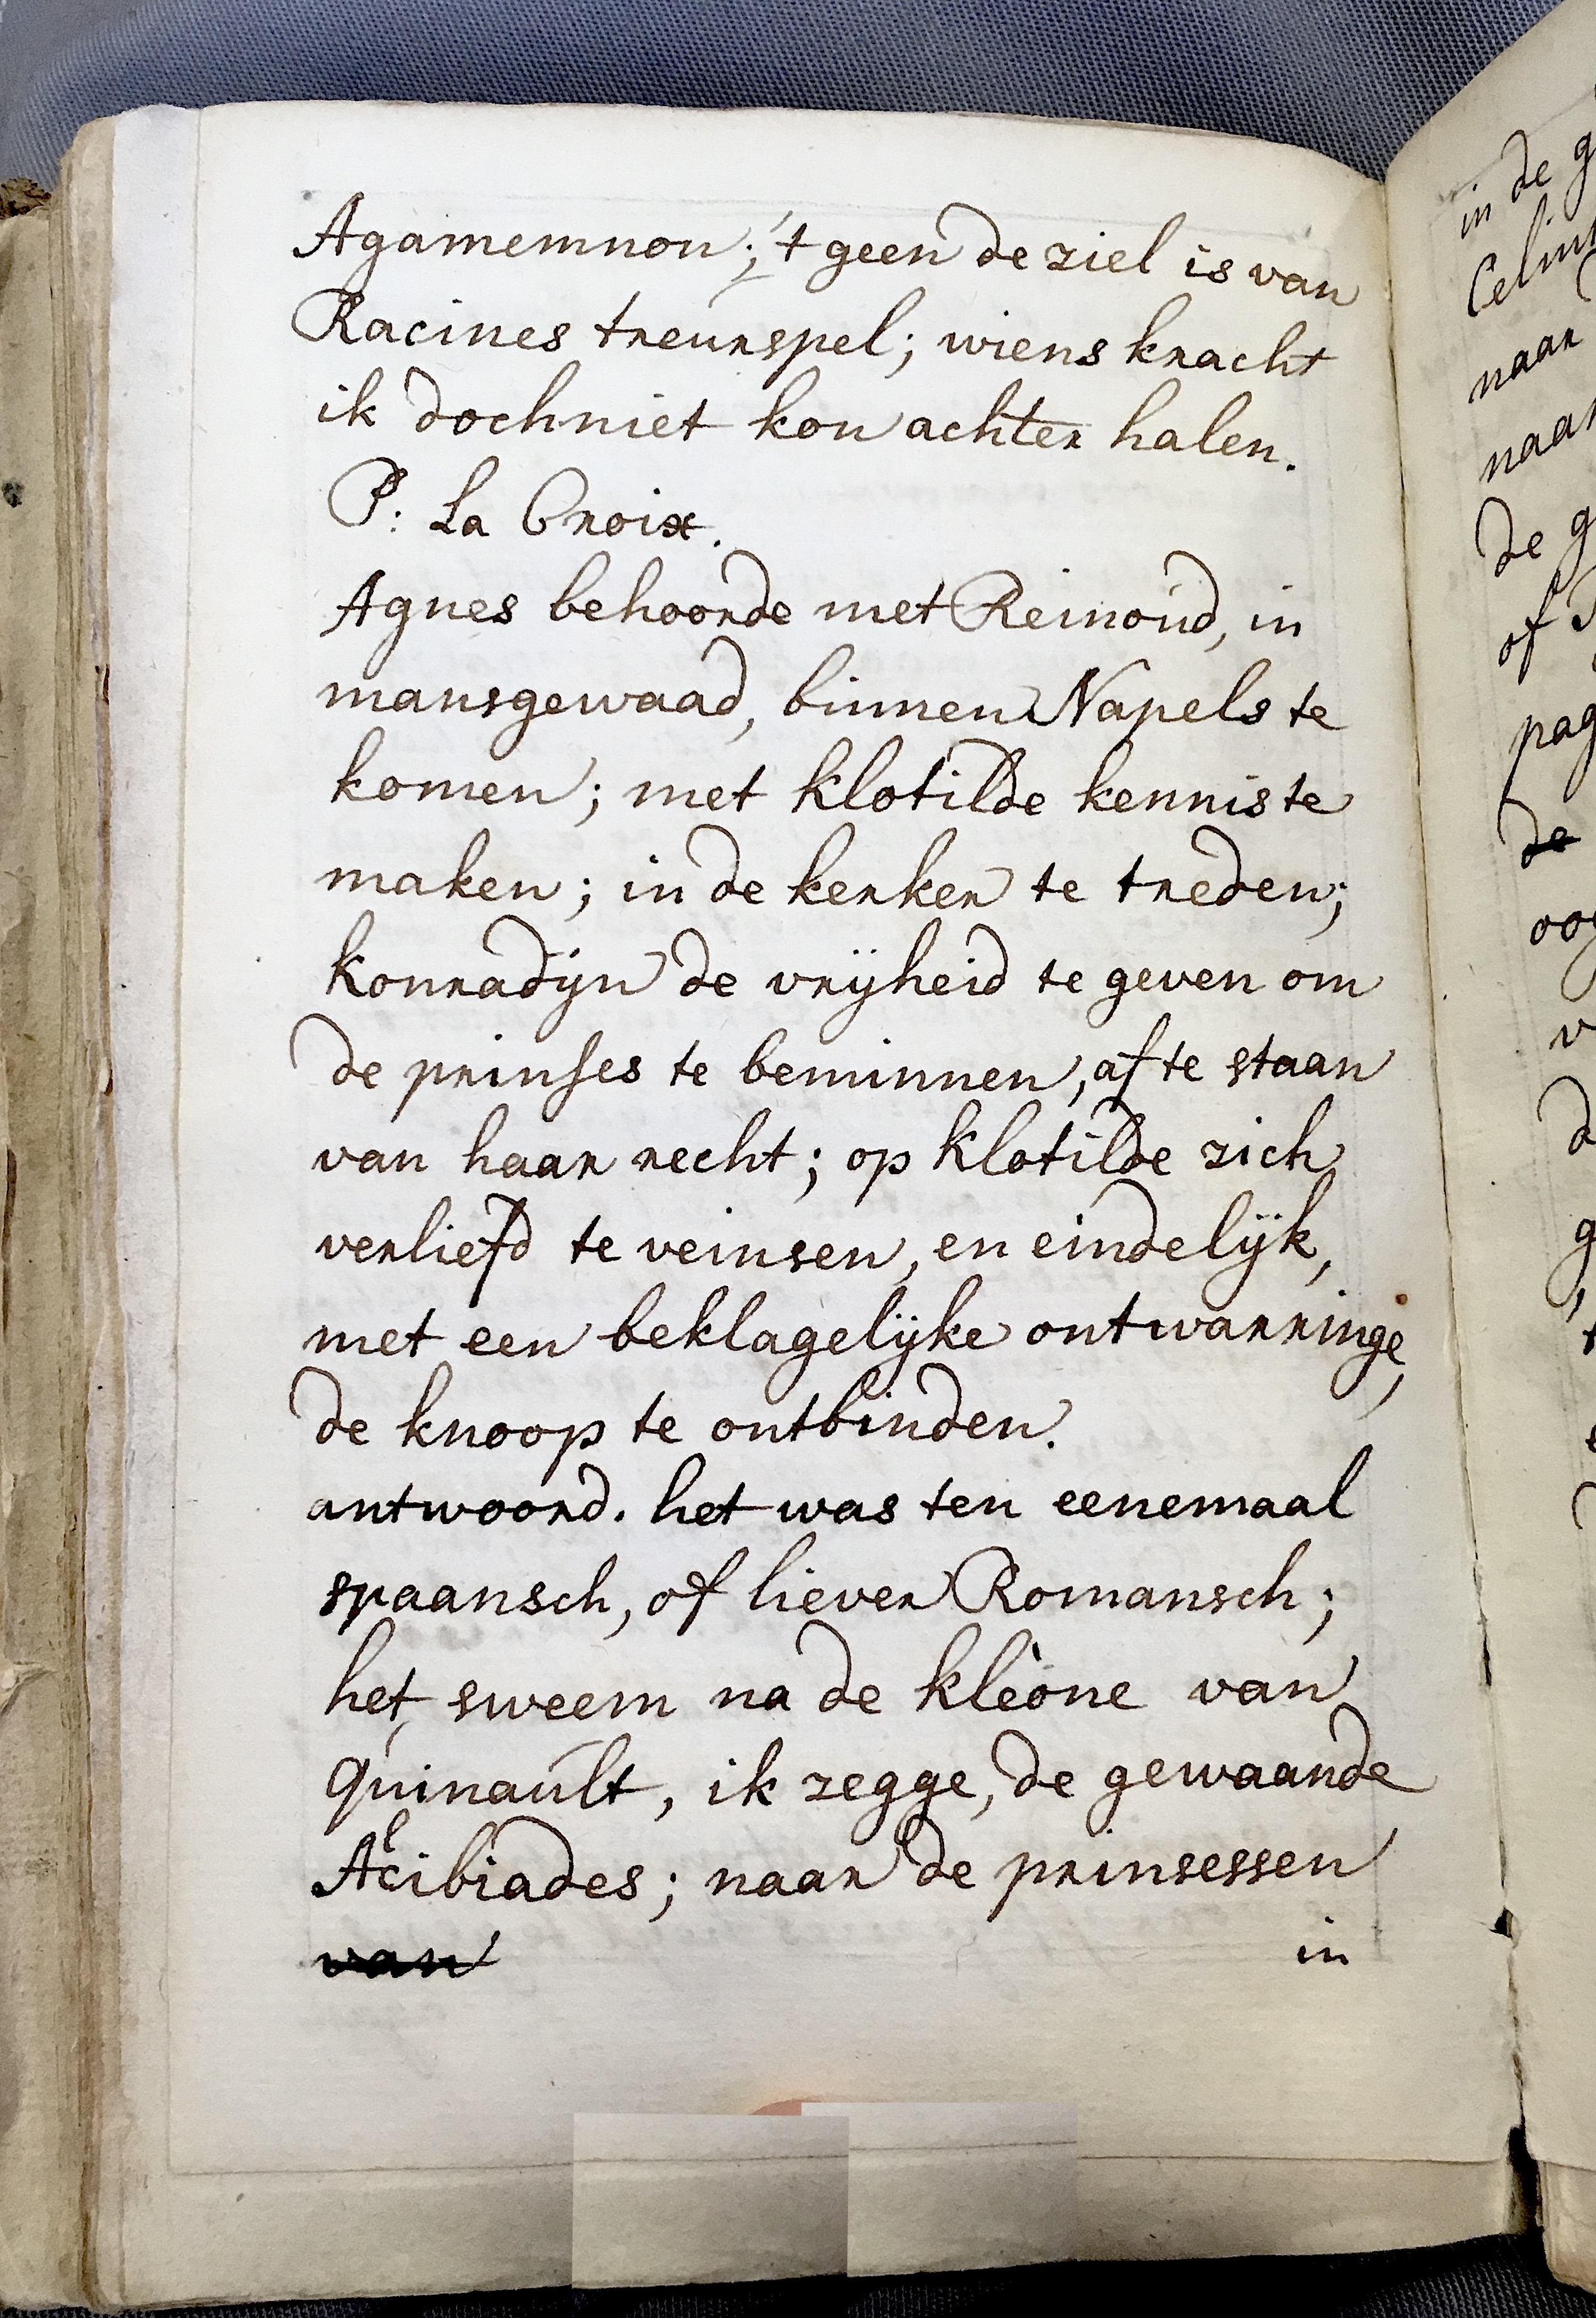 Agamemnon; 't geen de ziel is van
Racines treurspel; wiens kracht
ik doch niet kon achter halen.
P: La Croix.
Agnes behoorde met Reinoud, in
mansgewaad, binnen Napels te
komen; met Klotilde kennis te
maken; in de kerker te treden;
Konradijn de vrijheid te geven om
de prinses te beminnen, af te staan
van haar recht; op Klotilde zich
verliefd te veinsen, en eindelijk,
met een beklagelijke ontwarringe,
de knoop te ontbinden.
antwoord. het was ten eenemaal
spaansch, of liever Romansch;
het sweem na de klèone van
Quinault, ik zegge, de gewaande
Alcibiades; naar de prinsessen
van in
in de g
naar
de g
of
pag
de